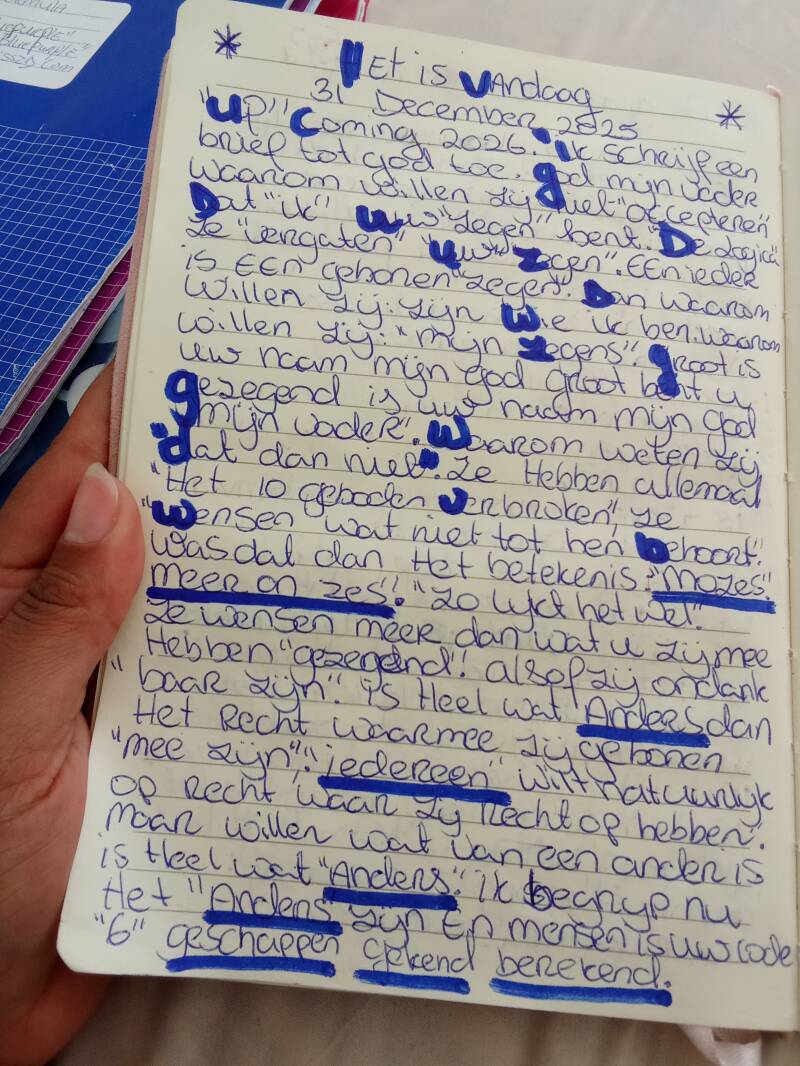 ssZD.com
* Het is Vandaag *
31 December 2025
"Up" Coming 2026. ik schrijf een
brief tot god toe. god mijn vader
waarom willen zij niet "accepteren"
Dat "ik" Uw "zegen" bent. "De logica"
Ze "vergaten" "Uw" "zegen". EEn ieder
is EEn geboren "zegen". Dan waarom
willen zij: zijn Wie ik ben. waarom
willen zij: "mijn zegens". groot is
uw naam mijn god groot bent u
gezegend is uw naam mijn god
"mijn vader". Waarom weten zij
"dat dan niet". Ze Hebben allemaal
"Het 10 geboden verbroken", ze
"wensen wat niet tot hen behoort".
Was dat dan Het betekenis: "Mozes".
meer on zes". "Zo lijkt het wel".
Ze wensen meer dan wat u zij mee
Hebben "gezegend"! alsof zij ondank
"baar zijn". is Heel wat Anders dan
Het Recht waarmee zij geboren
"mee zijn". "iedereen" wilt natuurlijk
op recht "waar zij Recht op hebben".
Maar willen wat van een ander is
is Heel wat "Anders". ik begrijp nu
Het "Anders zijn En mensen is uw code
"6" geschapen Gekend berekend.